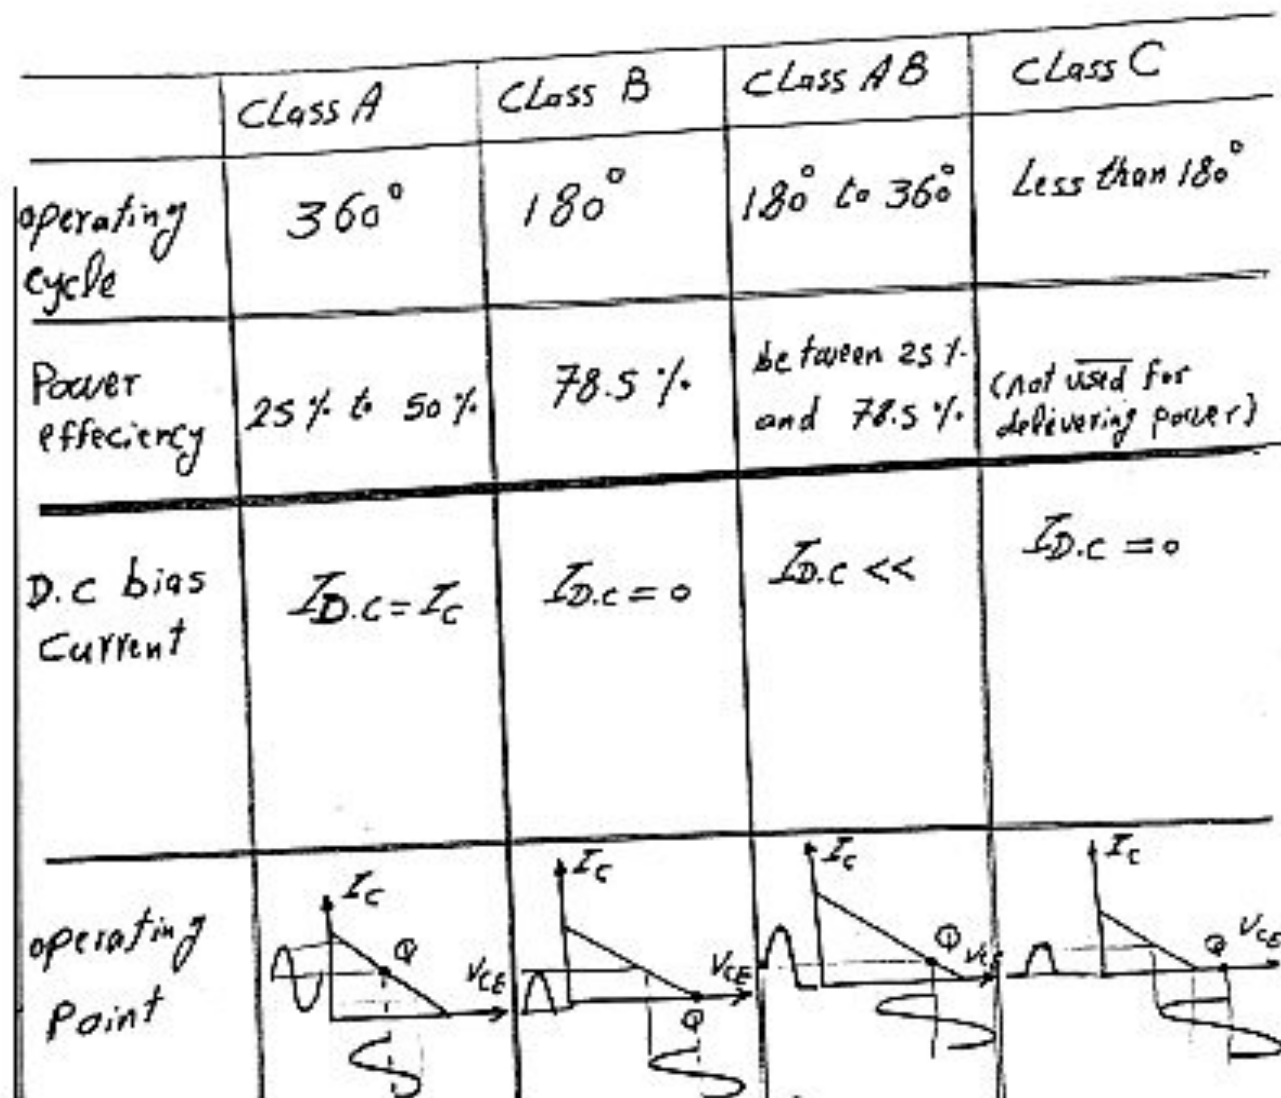 CLass A
CLass B
CLass AB
CLass C
operating
cycle
360°
180°
180° to 360°
Less than 180°
Power
effeciency
25 % to 50 %
78.5 %
between 25 %
and 78.5 %
(not used for
delivering power)
D.C bias
Current
I_D.C = I_C
I_D.C = 0
I_D.C <<
I_D.C = 0
operating
Point
I_C
Q
V_CE
I_C
V_CE
Q
I_C
Q
V_CE
I_C
Q
V_CE